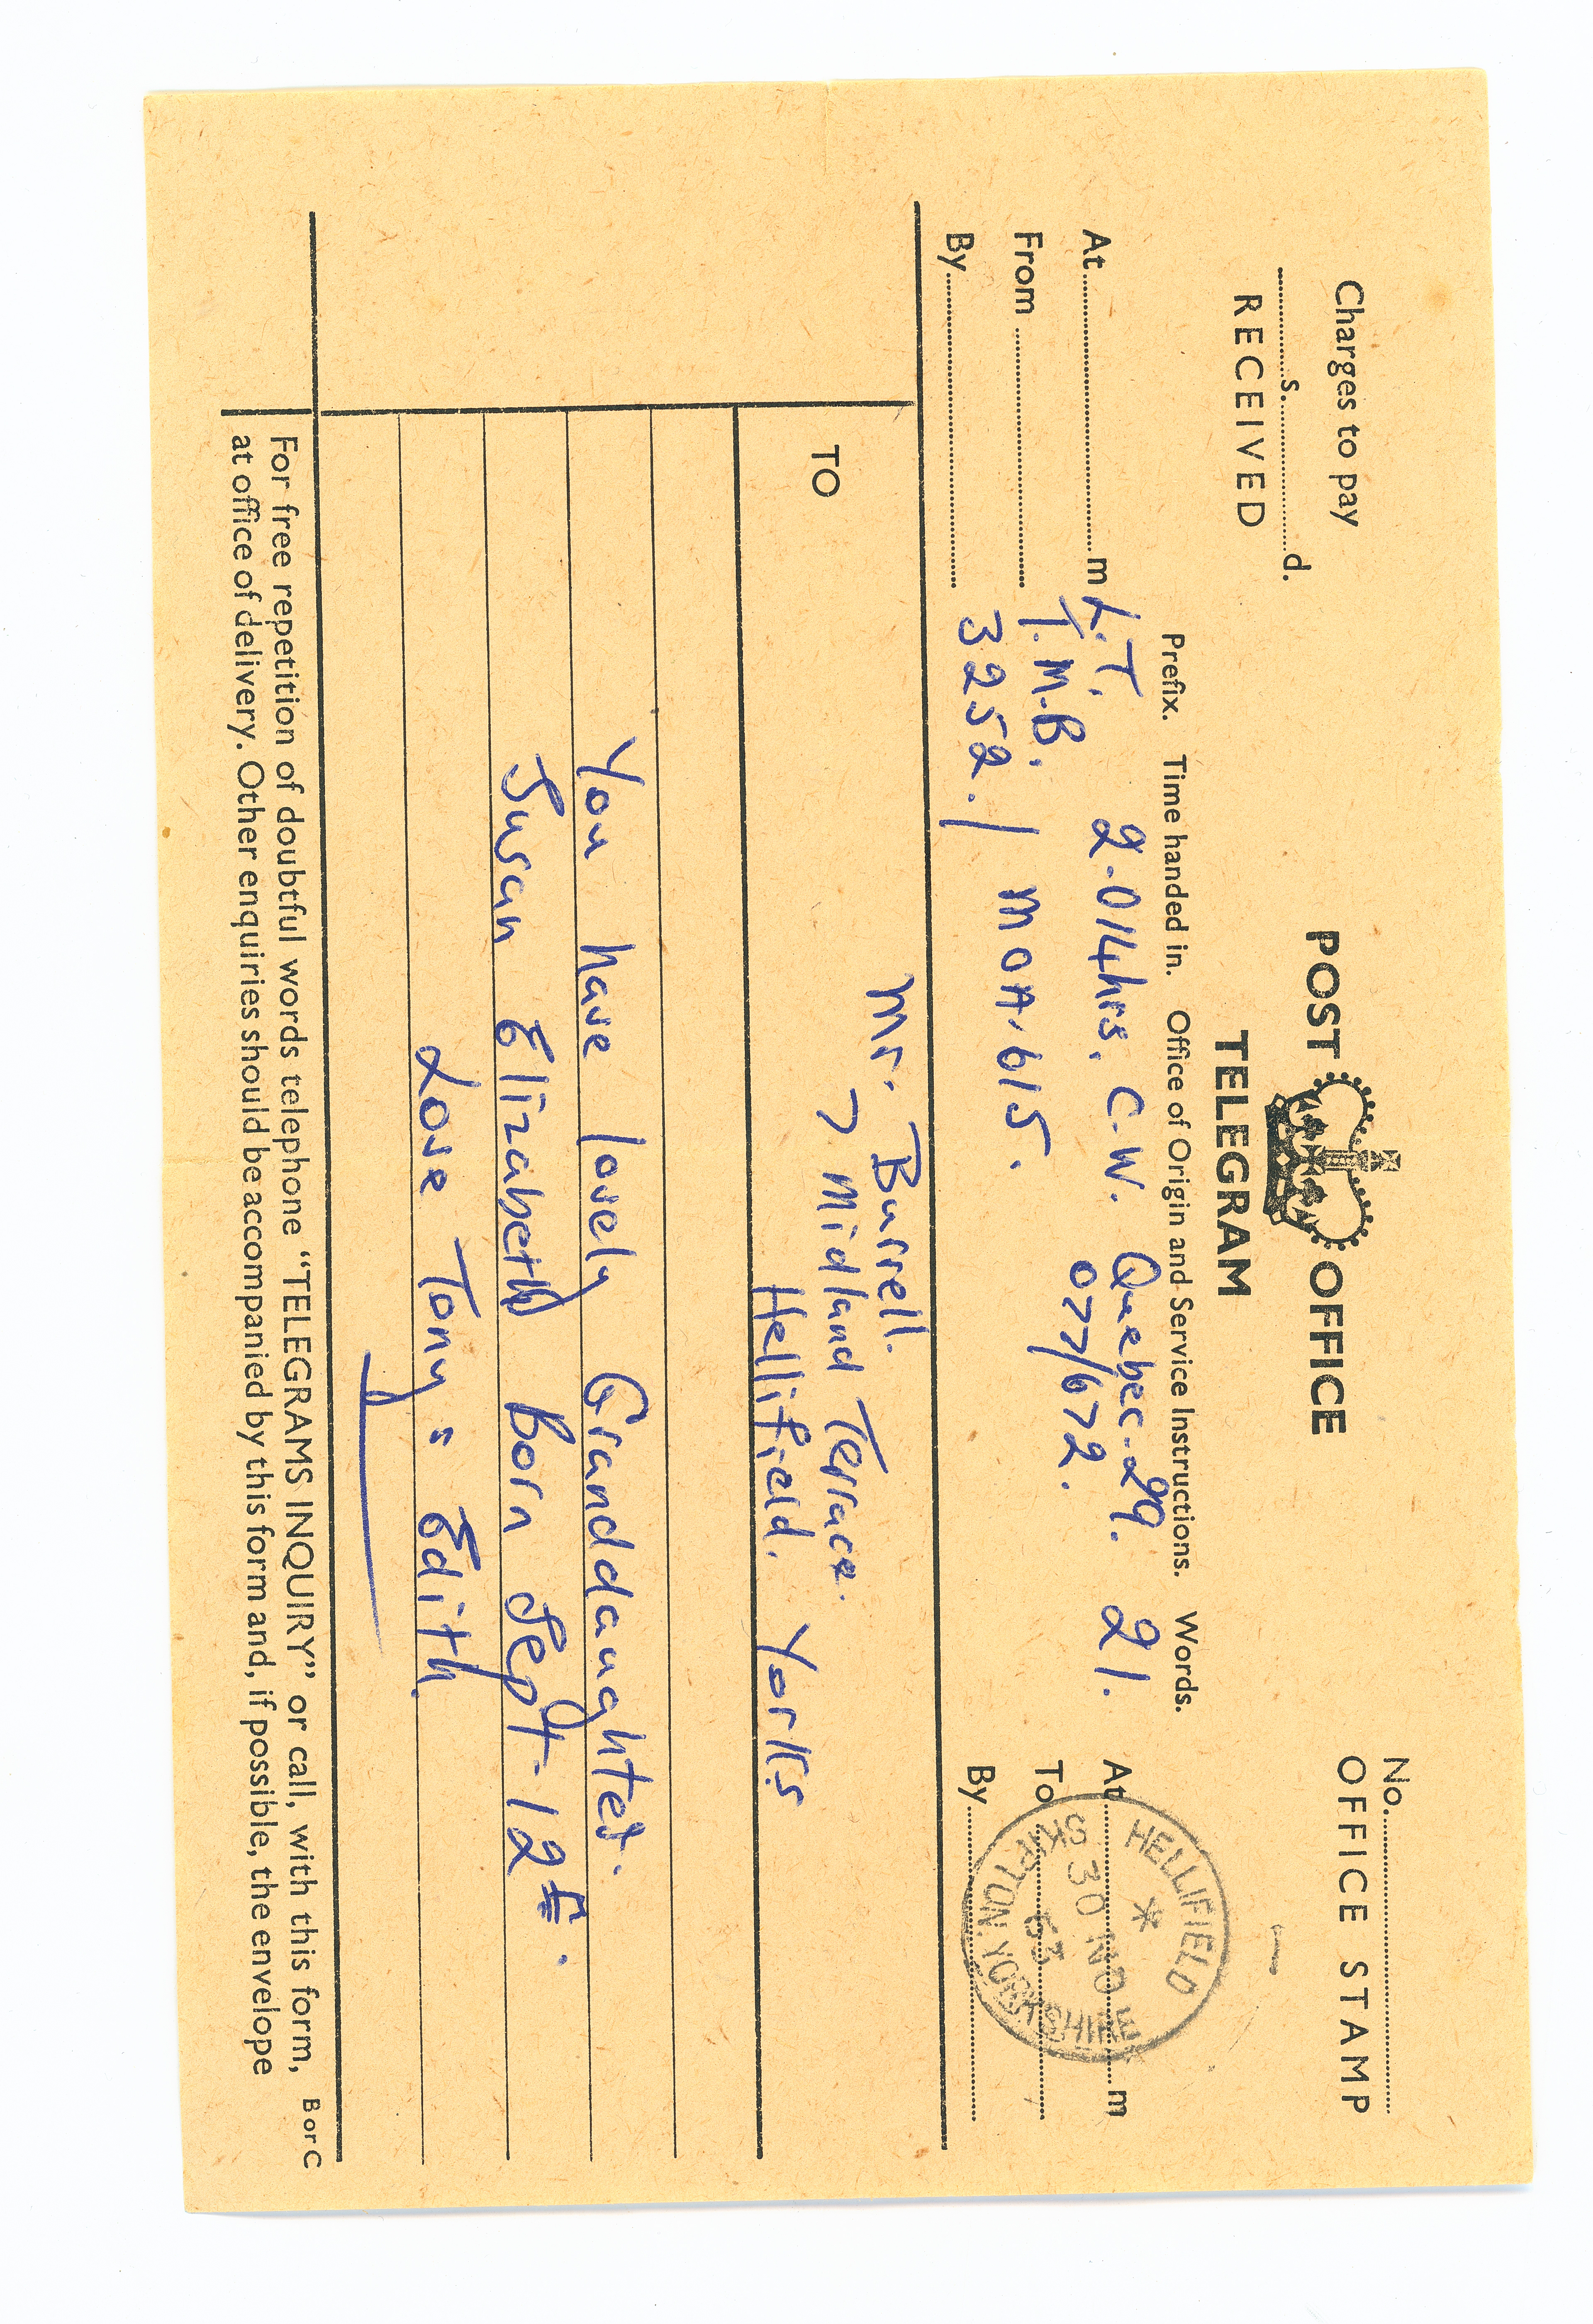 No.
Charges to pay
s. d.
RECEIVED
POST OFFICE
TELEGRAM
OFFICE STAMP
Prefix. Time handed in. Office of Origin and Service Instructions. Words.
At m
From
By
L.T. 2.014hrs. C.W. Quebec.29. 21.
T.M.B. 077/672.
3252./ MOA.615.
At m
To
By
HELLIFIELD
30 NO
63
SKIPTON. YORKSHIRE
TO
Mr. Burrell.
7 Midland Terrace.
Hellifield. Yorks
You have lovely Granddaughter.
Susan Elizabeth Born Sept-12
Love Tony = Edith.
For free repetition of doubtful words telephone “TELEGRAMS INQUIRY” or call, with this form,
at office of delivery. Other enquiries should be accompanied by this form and, if possible, the envelope
B or C